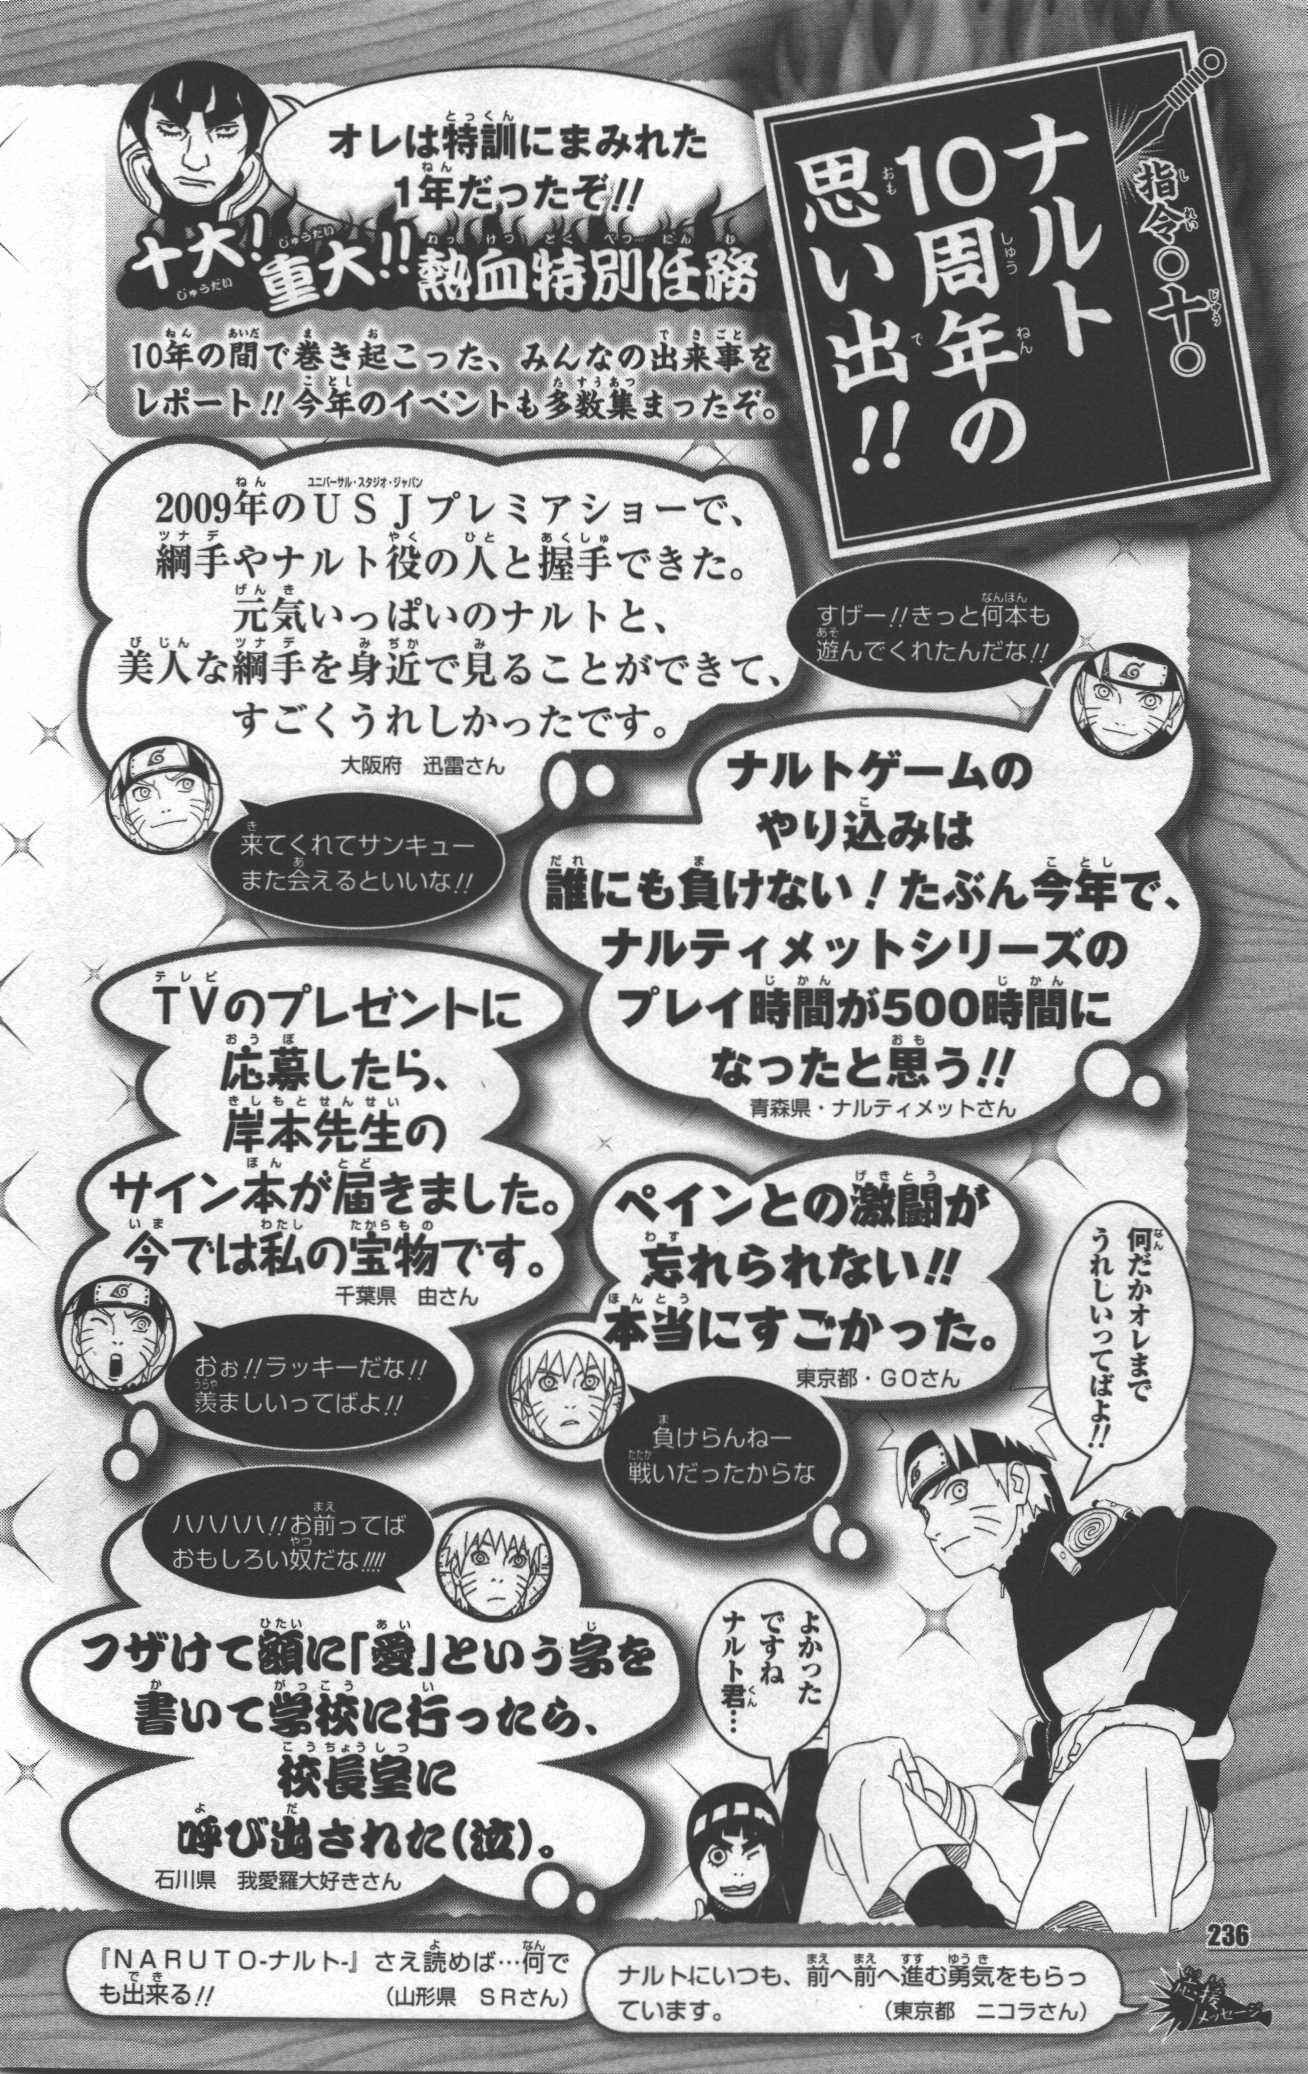 指令〇十〇
ナルト
10周年の
思い出!!
オレは特訓にまみれた
1年だったぞ!!
十大!
重大!!
熱血特別任務
10年の間で巻き起こった、みんなの出来事を
レポート!!今年のイベントも多数集まったぞ。
2009年のUSJプレミアショーで、
綱手やナルト役の人と握手できた。
元気いっぱいのナルトと、
美人な綱手を身近で見ることができて、
すごくうれしかったです。
大阪府 迅雷さん
来てくれてサンキュー
また会えるといいな!!
すげー!!きっと何本も
遊んでくれたんだな!!
ナルトゲームの
やり込みは
誰にも負けない!たぶん今年で、
ナルティメットシリーズの
プレイ時間が500時間に
なったと思う!!
青森県・ナルティメットさん
TVのプレゼントに
応募したら、
岸本先生の
サイン本が届きました。
今では私の宝物です。
千葉県 由さん
おぉ!!ラッキーだな!!
羨ましいってばよ!!
ペインとの激闘が
忘れられない!!
本当にすごかった。
東京都・GOさん
負けらんねー
戦いだったからな
何だかオレまで
うれしいってばよ!!
ハハハハ!!お前ってば
おもしろい奴だな!!!!
フザけて額に「愛」という字を
書いて学校に行ったら、
校長室に
呼び出された(泣)。
石川県 我愛羅大好きさん
よかった
ですね
ナルト君…
236
『NARUTO-ナルト-』さえ読めば…何で
も出来る!!
(山形県 SRさん)
ナルトにいつも、前へ前へ進む勇気をもらっ
ています。
(東京都 ニコラさん)
応援
メッセージ